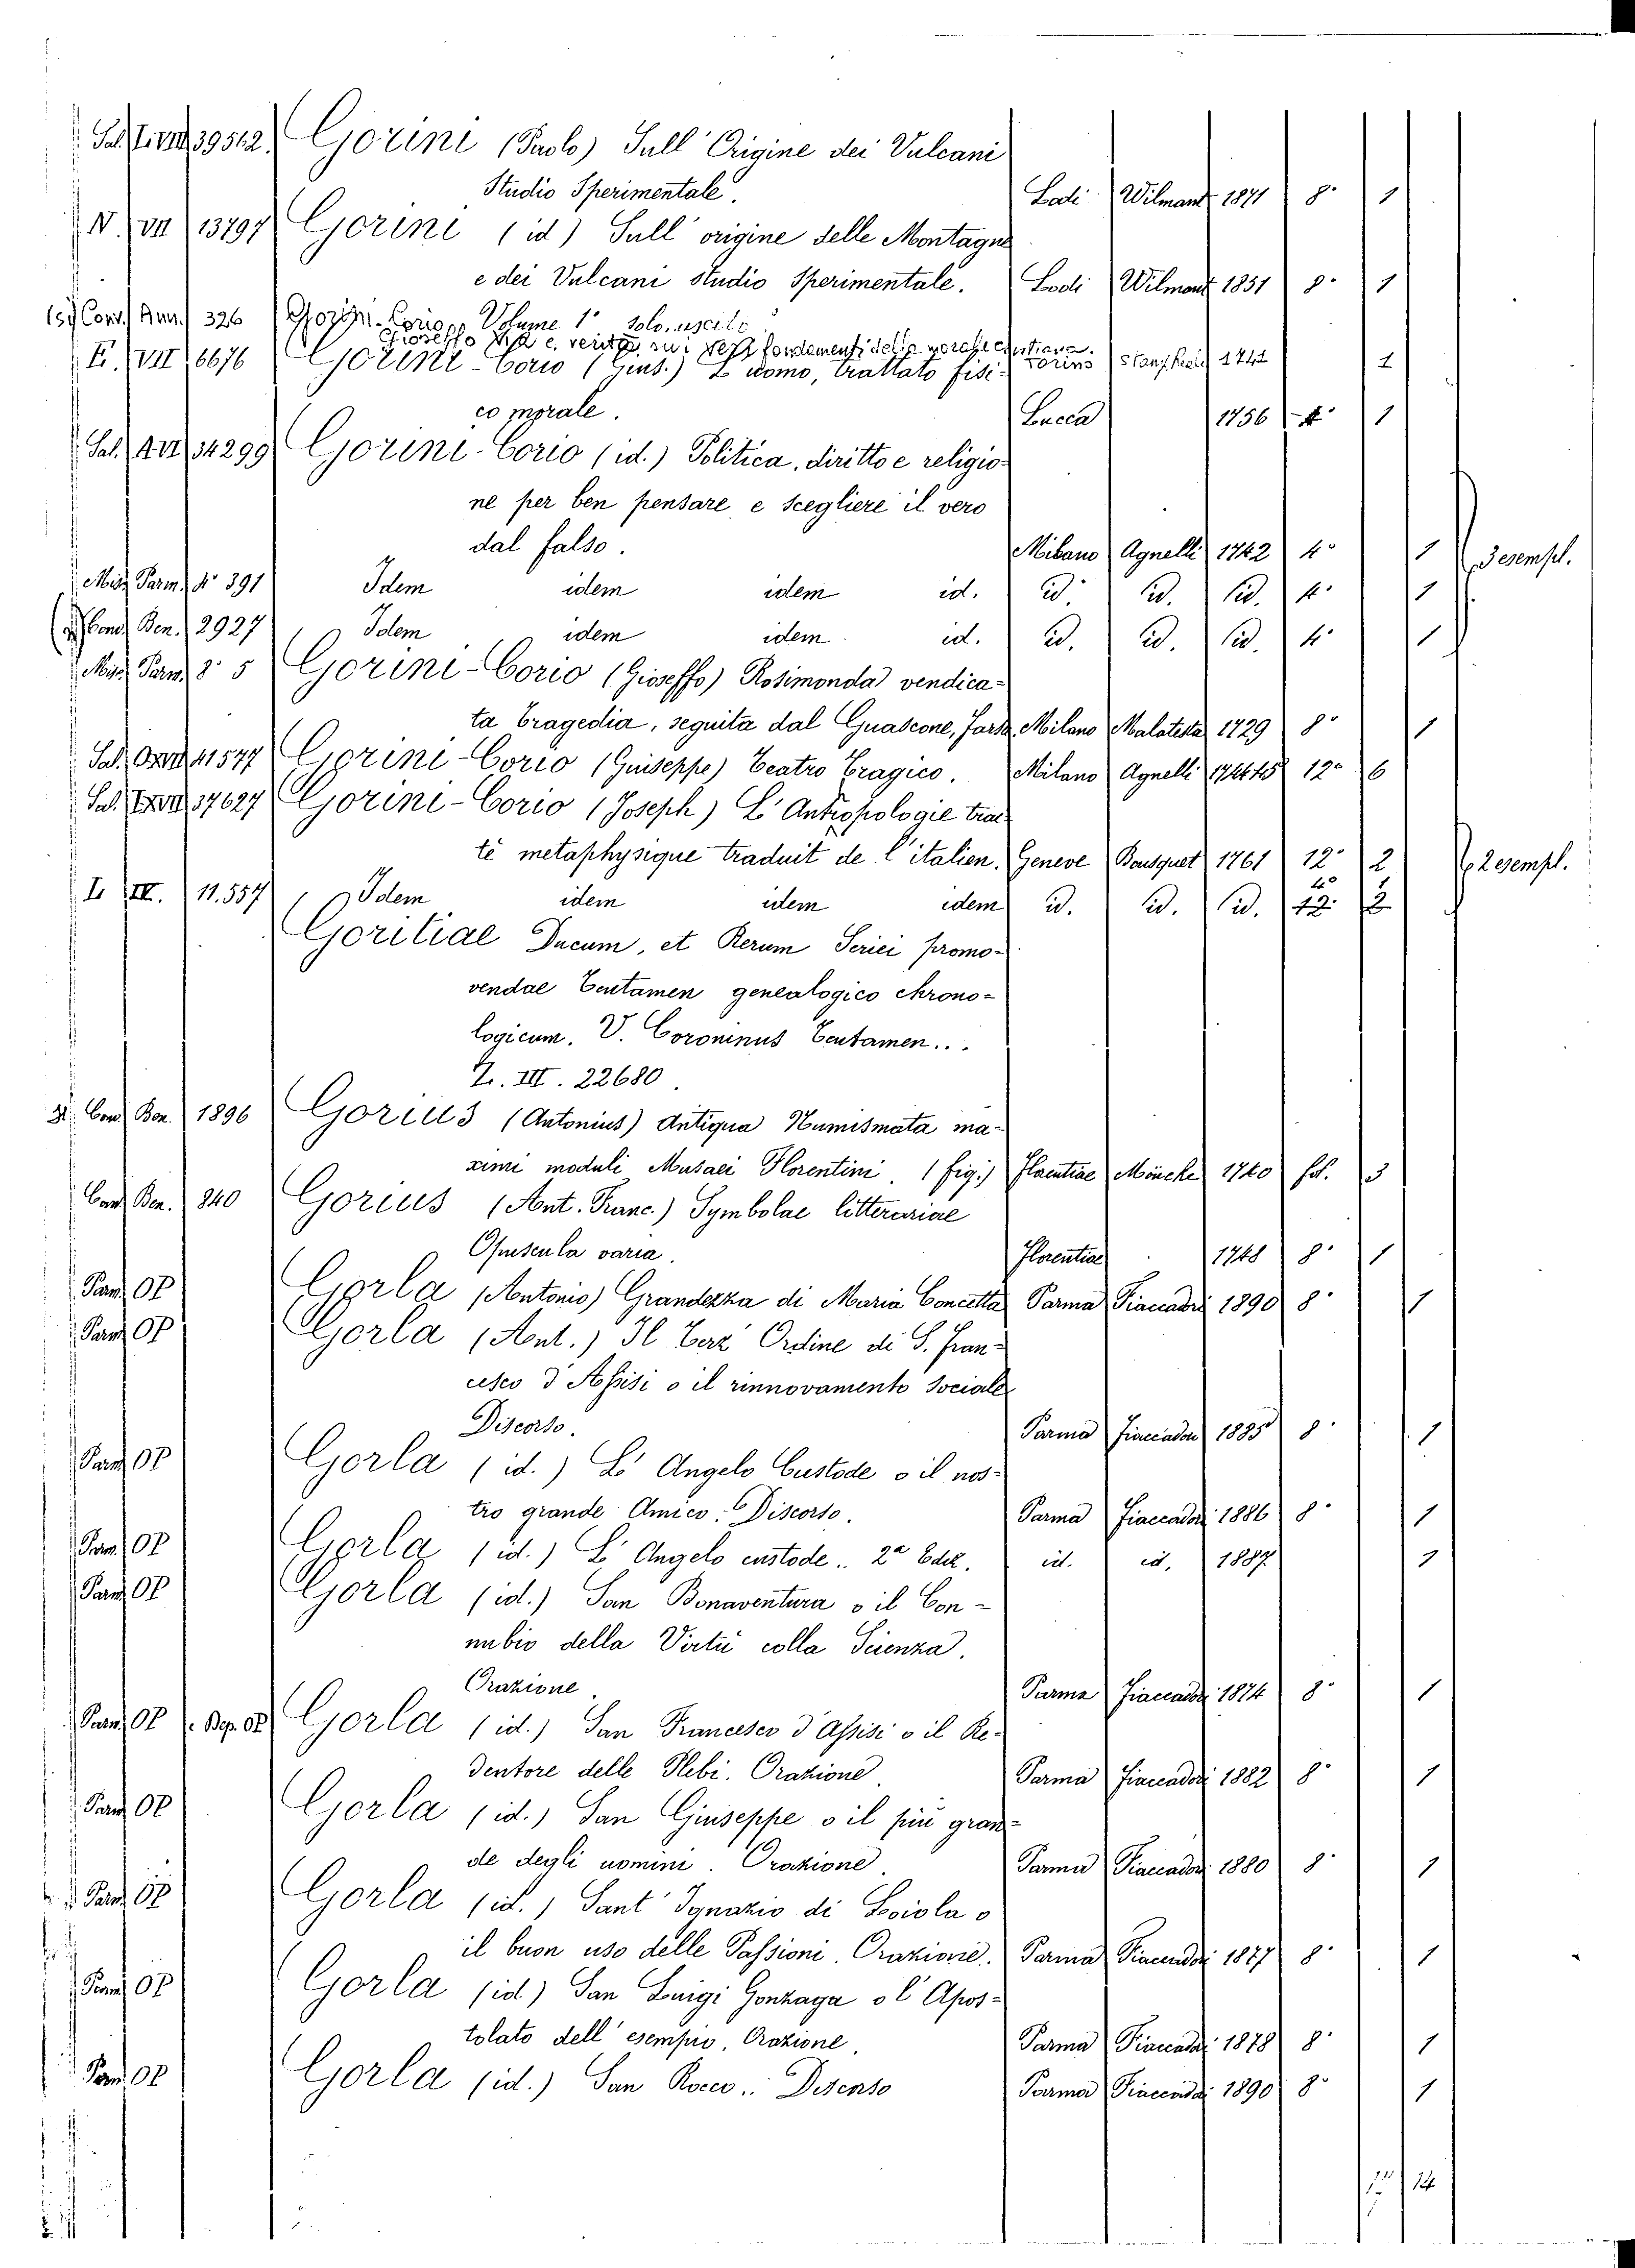 Sal. E. VIII 39512. Gorini (Paolo) Sull' Origine dei Vulcani
Studio Sperimentale. Lodi Wilmant 1871 8° 1
N. VII 13797 Gorini (id) Sull' origine delle Montagne
e dei Vulcani studio Sperimentale. Lodi Wilmant 1851 8° 1
Volume 1° solo. uscito
Conv. Ann. 326 Gorini-Corio Gioseffo
fondamenti della morale cristiana. Torino 1742 1
E. VII 6676 Gorini-Corio (Gius.) L'uomo, trattato fisi-
co morale. Lucca 1756 4° 1
Sal. 34299 Gorini-Corio (id.) Politica, diritto e religio-
ne per ben pensare e scegliere il vero
dal falso. Milano Agnelli 1742 4° 1 3 esempl.
Misc. Parm. 4° 391 Idem idem idem id. id. id. id. 4° 1
Cond. Ben. 2927 Idem idem idem id. id. id. id. 4° 1
Misc. Parm. 8° 5 Gorini-Corio (Gioseffo) Rosimonda vendica-
ta Tragedia, seguita dal Guascone, Farsa. Milano Malatesta 1729 8° 1
Sal. 41577 Gorini-Corio (Guiseppe) Teatro Tragico. Milano Agnelli 1744 45 12° 6
Sal. 37627 Gorini-Corio (Joseph) L'Antropologie trai-
té metaphysique traduit de l'italien. Geneve Bousquet 1761 12° 2 2 esempl.
I. III. 11.557 Idem idem idem idem id. id. id. 12° 2
4° 1
Goritiae Ducum, et Rerum Serici promo-
vendae Tentamen genealogico chrono-
logicum. V. Coroninus Tentamen...
Z. III. 22680.
Cond. Bon. 1896 Gorius (Antonius) Antiqua Numismata ma-
ximi moduli Musaei Florentini. (fig.) Florentiae Moücke 1740 fol. 3
Cond. Ben. 840 Gorius (Ant. Franc.) Symbolae litterariae
Opuscula varia. Florentiae 1748 8° 1
Parm. OP Gorla (Antonio) Grandezza di Maria Concetta Parma Fiaccadori 1890 8° 1
Parm. OP Gorla (Ant.) Il Terz' Ordine di S. Fran-
cesco d'Assisi o il rinnovamento Sociale
Discorso. Parma Fiaccadori 1885 8° 1
Parm. OP Gorla (id.) L'Angelo Custode o il nos-
tro grande Amico. Discorso. Parma Fiaccadori 1886 8° 1
Parm. OP Gorla (id.) L'Angelo custode.. 2ª Ediz. id. id. 1887 1
Parm. OP Gorla (id.) San Bonaventura o il Con-
nubio della Virtù colla Scienza.
Orazione. Parma Fiaccadori 1874 8° 1
Parm. OP Gorla (id.) San Francesco d'Assisi o il Re-
dentore delle Plebi. Orazione. Parma Fiaccadori 1882 8° 1
Parm. OP Gorla (id.) San Giuseppe o il più gran-
de degli uomini. Orazione. Parma Fiaccadori 1880 8° 1
Parm. OP Gorla (id.) Sant' Ignazio di Loiola o
il buon uso delle Passioni. Orazione. Parma Fiaccadori 1877 8° 1
Parm. OP Gorla (id.) San Luigi Gonzaga o l'Apos-
tolato dell'esempio. Orazione. Parma Fiaccadori 1878 8° 1
Parm. OP Gorla (id.) San Rocco.. Discorso Parma Fiaccadori 1890 8° 1